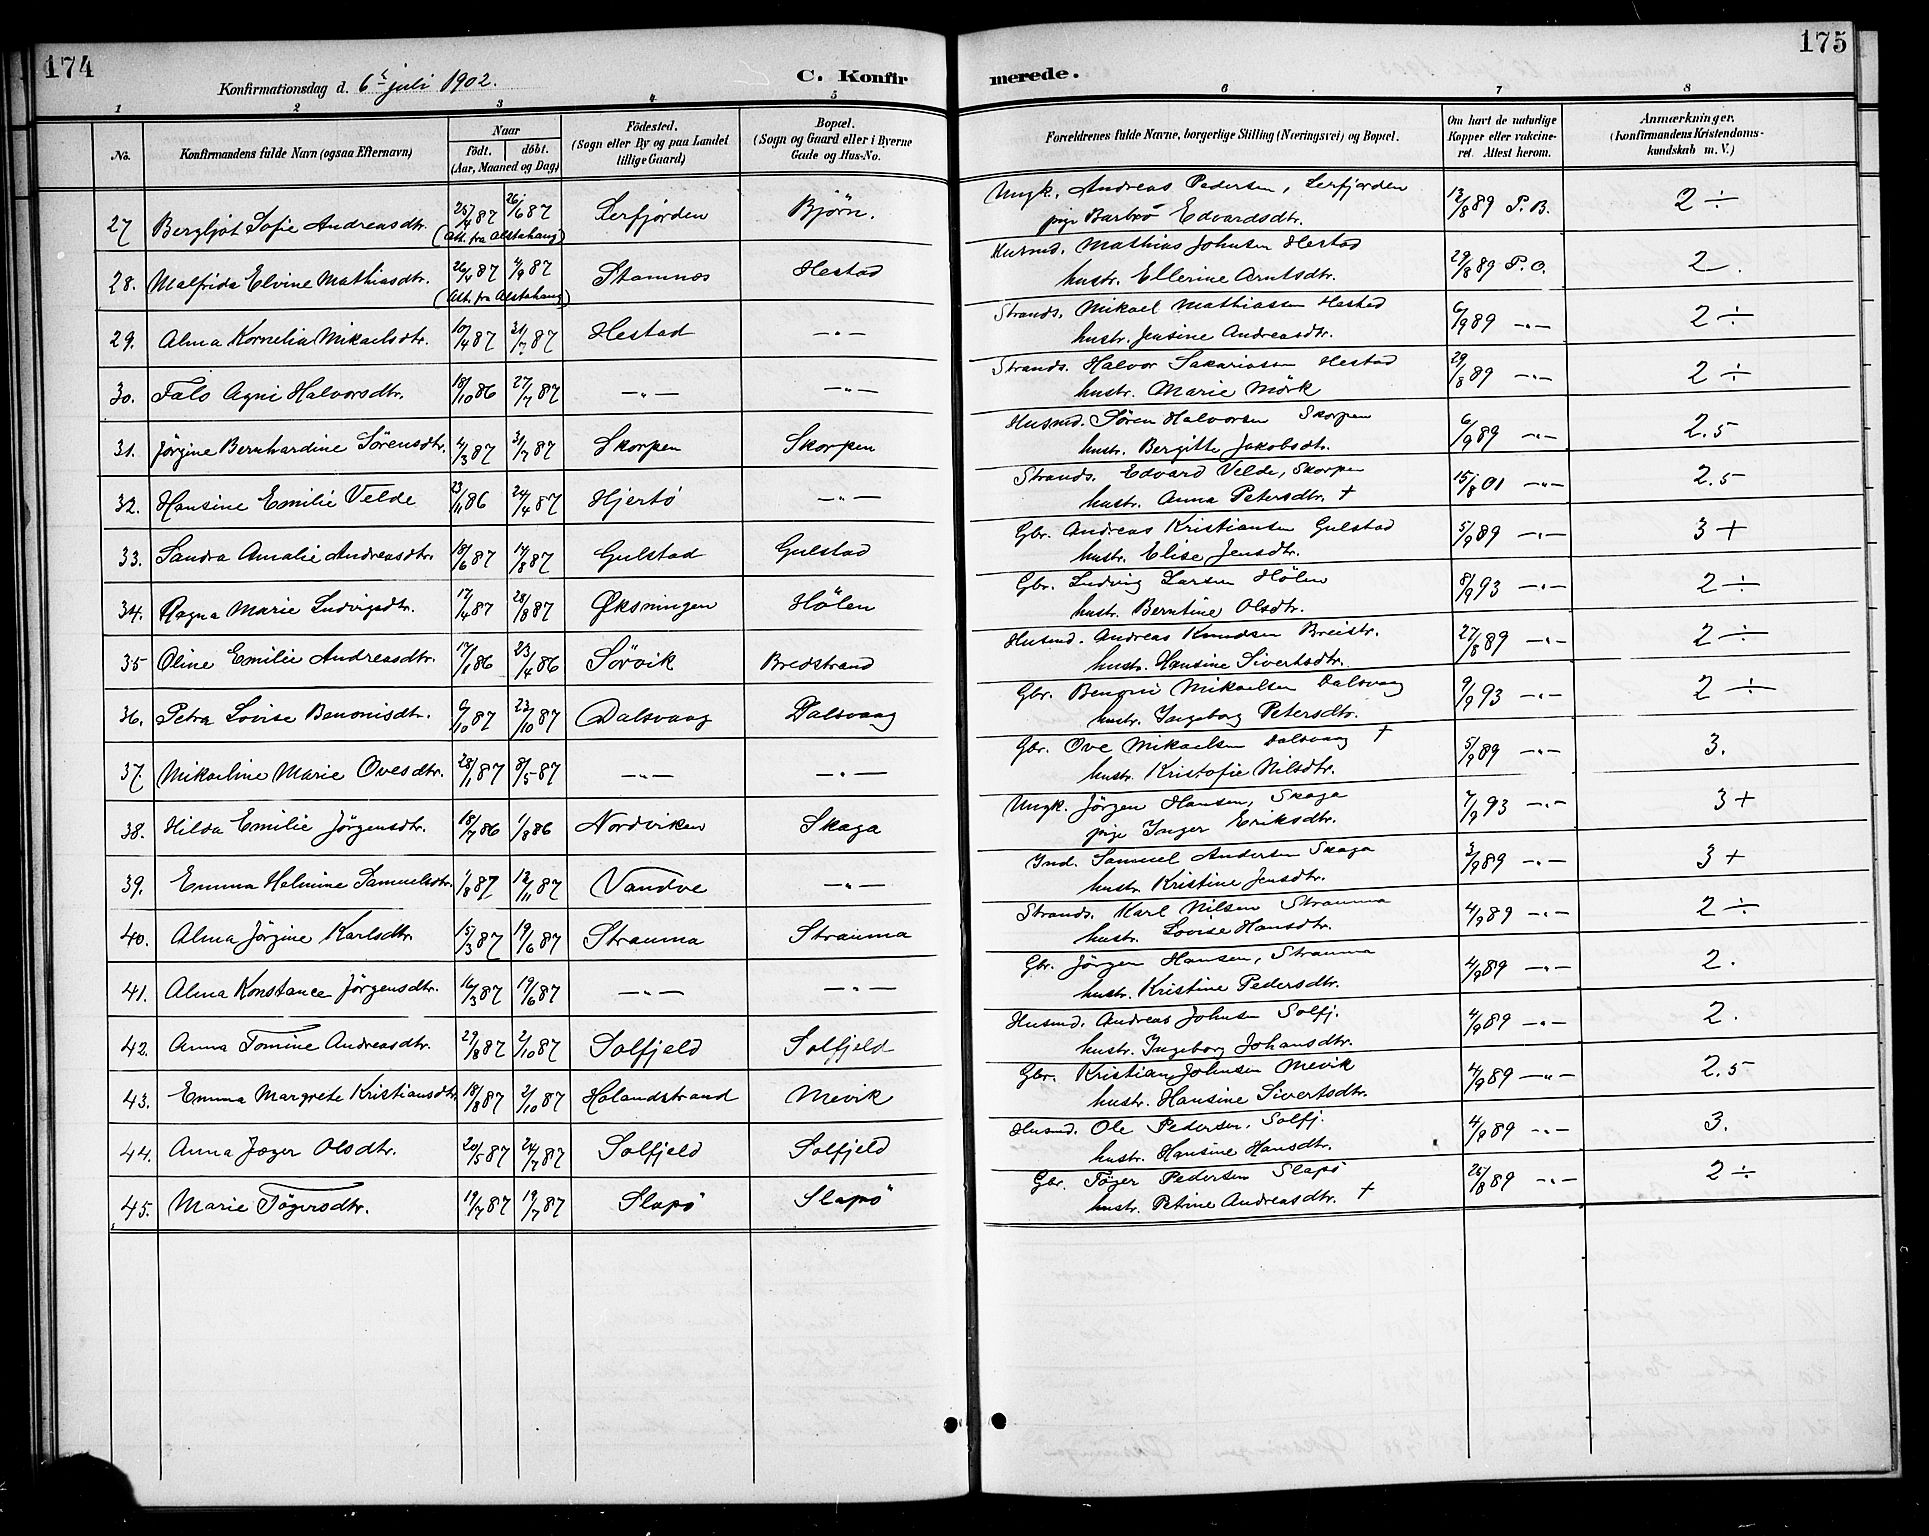 174
175
Konfirmationsdag d. 6te juli 1902.
C. Konfirmerede.
1 2 3 4 5 6 7 8
No.
Konfirmandens fulde Navn (ogsaa Efternavn)
Naar
Födt. döbt.
(Aar, Maaned og Dag)
Födested.
(Sogn eller By og paa Landet
tillige Gaard)
Bopæl.
(Sogn og Gaard eller i Byerne
Gade og Hus-No.
Forældrenes fulde Navne, borgerlige Stilling (Næringsvei) og Bopæl.
Om havt de naturlige
Kopper eller vakcine-
ret. Attest herom.
Anmærkninger.
(Konfirmandens Kristendoms-
kundskab m. V.)
27 Bergljot Sofie Andreasdtr. 25/4 87 26/6 87 Lerfjorden Björn. Ungk. Andreas Pedersen, Lerfjorden 13/8 89 P.B. 2 ÷
(Att. fra Alstahaug) pige Barbrö Edvardsdtr.
28. Malfrida Elvine Mathiasdtr. 26/4 87 4/9 87 Stamnes Hestad Husmd. Mathias Johnsen Hestad 29/8 89 P.O. 2.
(Att. fra Alstahaug) hustr. Ellerine Arntsdtr.
29. Alma Kornelia Mikaelsdtr. 10/4 87 31/7 87 Hestad —"— Strands. Mikael Mathiassen Hestad 6/9 89 —"— 2 ÷
hustr. Jensine Andreasdtr.
30. Falo Agni Halvorsdtr. 18/10 86 27/7 87 —"— —"— Strands. Halvor Sakariassen Hestad 29/8 89 —"— 2 ÷
hustr. Marie Mörk
31. Jörgine Bernhardine Sörensdtr. 4/3 87 31/7 87 Skorpen Skorpen Husmd. Sören Halvorsen Skorpen 6/9 89 —"— 2.5
hustr. Bergitte Jakobsdtr.
32. Hansine Emilie Velde 23/11 86 24/4 87 Hjertö —"— Strands. Edvard Velde, Skorpen 15/8 01 —"— 2.5
hustr. Anna Petersdtr. †
33. Sandra Amalie Andreasdtr. 18/6 87 14/8 87 Gulstad Gulstad Gbr. Andreas Kristiansen Gulstad 5/9 89 —"— 3 +
hustr. Elise Jensdtr.
34. Ragna Marie Ludvigsdtr. 17/4 87 28/8 87 Øksningen Hölen Gbr. Ludvig Larsen Hölen 8/9 93 —"— 2 ÷
hustr. Berntine Olsdtr.
35 Oline Emilie Andreasdtr. 17/1 86 23/4 86 Sörvik Bredstrand Husmd. Andreas Knudsen Breistr. 27/8 89 —"— 2 ÷
hustr. Hansine Sivertsdtr.
36. Petra Lovise Benonisdtr. 9/10 87 23/10 87 Dalsvaag Dalsvaag Gbr. Benoni Mikaelsen Dalsvaag 9/9 93 —"— 2 ÷
hustr. Ingeborg Petersdtr.
37. Mikaeline Marie Ovesdtr. 28/1 87 8/5 87 —"— —"— Gbr. Ove Mikaelsen Dalsvaag † 5/9 89 —"— 3.
hustr. Kristofie Nilsdtr.
38. Hilda Emilie Jörgensdtr. 18/7 86 1/8 86 Nordviken Skaga Ungk. Jörgen Hansen, Skaga 7/9 93 —"— 3 +
pige Inger Eriksdtr.
39. Emma Helmine Samuelsdtr. 1/8 87 12/11 87 Vandve —"— Ind. Samuel Andersen Skaga 3/9 89 —"— 3 +
hustr. Kristine Jensdtr.
40. Alma Jörgine Karlsdtr 15/3 87 19/6 87 Strauma Strauma Strands. Karl Nilsen Strauma 4/9 89 —"— 2 ÷
hustr. Lovise Hansdtr.
41. Alma Konstance Jörgensdtr. 16/3 87 19/6 87 —"— —"— Gbr. Jörgen Hansen, Strauma 4/9 89 —"— 2.
hustr. Kristine Pedersdtr.
42. Anna Tomine Andreasdtr. 29/8 87 2/10 87 Solfjeld Solfjeld Husmd. Andreas Johnsen Solfj. 4/9 89 —"— 2.
hustr. Ingeborg Johansdtr.
43. Emma Margrete Kristiansdtr. 18/8 87 2/10 87 Holandstrand Mevik Gbr. Kristian Johnsen Mevik 4/9 89 —"— 2.5
hustr. Hansine Sivertsdtr.
44. Anna Jæger Olsdtr. 20/5 87 24/7 87 Solfjeld Solfjeld Husmd. Ole Pedersen, Solfj. 4/9 89 —"— 3.
hustr. Hansine Hansdtr.
45. Marie Tögersdtr. 19/7 87 19/7 87 Slapö Slapö Gbr. Töger Pedersen Slapö 26/8 89 —"— 2 ÷
hustr. Petrine Andreasdtr. †